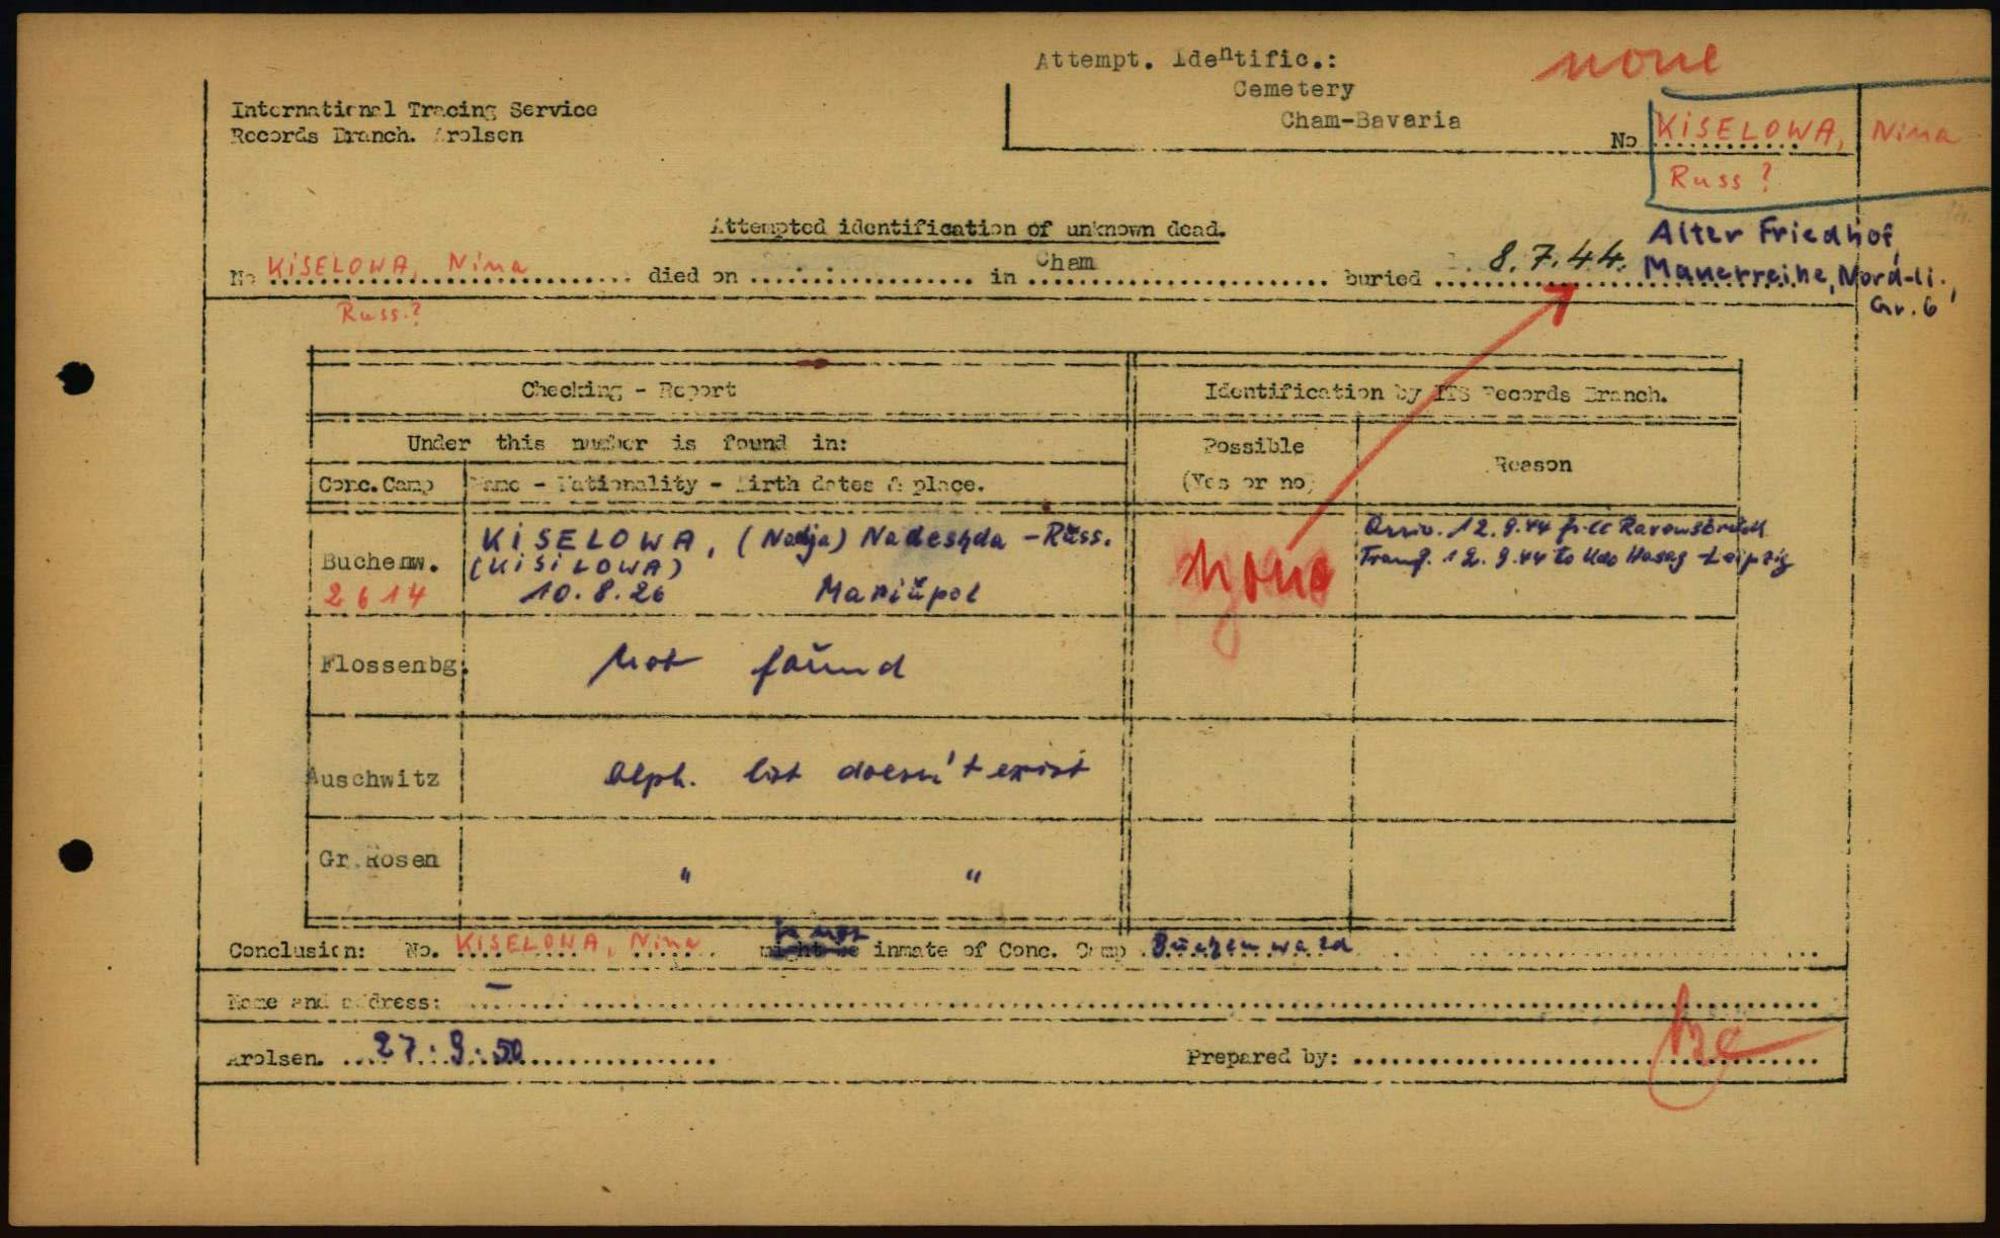 Attempt. Identific.:
none
Cemetery
Cham-Bavaria
International Tracing Service
Records Branch. Arolsen
No KISELOWA, Nina
Russ?
Attempted identification of unknown dead.
Alter Friedhof,
No KISELOWA, Nina died on ................. in Cham buried 8.7.44. Mauerreihe, Nord-li.,
Gr. 6
Russ.?
Checking - Report
Identification by ITS Records Branch.
Under this number is found in:
Possible
(Yes or no)
Reason
Conc. Camp
Name - Nationality - Birth dates & place.
Buchenw.
2614
KISELOWA, (Nadja) Nadeshda - Russ.
(KISILOWA)
10.8.26 Mariupol
none
Arriv. 12.9.44 fr. CC Ravensbrück
Transf. 12.9.44 to Kdo Hasag - Leipzig
Flossenbg.
not found
Auschwitz
Alph. list doesn't exist
Gr. Rosen
" "
Conclusion: No. KISELOWA, Nina might be is not inmate of Conc. Camp Buchenwald
Name and address: -
Arolsen. 27.9.50
Prepared by: